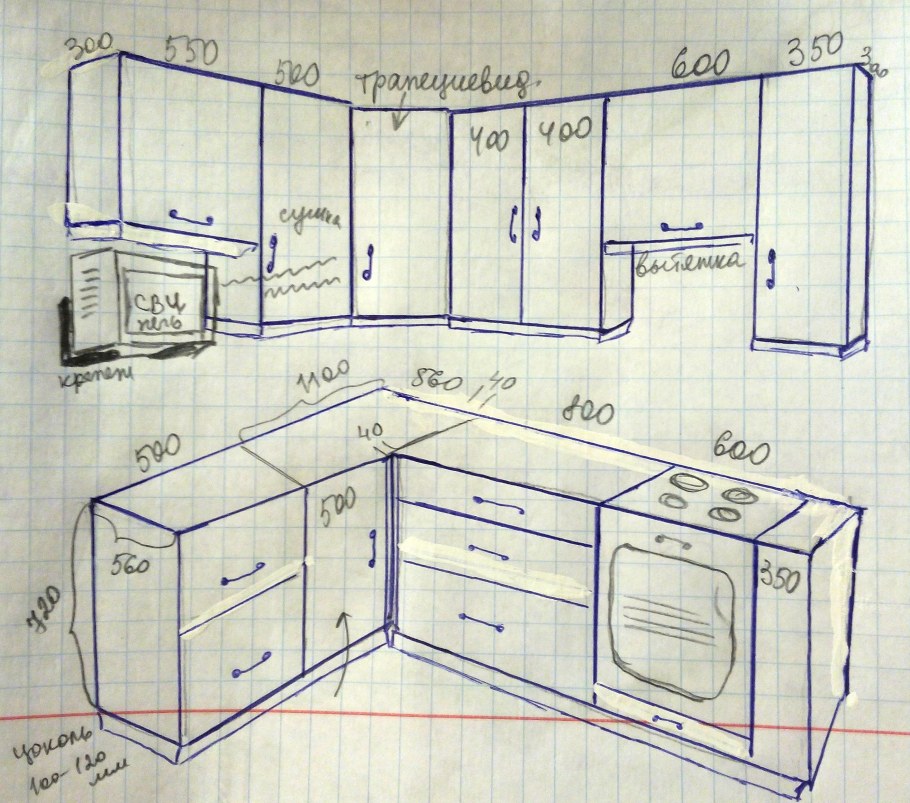 300
550
500
трапециевид.
600
350
300
400
400
сушка
СВЧ
печь
вытяжка
крепеж
1100
560
40
500
40
800
600
560
500
350
720
цоколь
100-120
мм